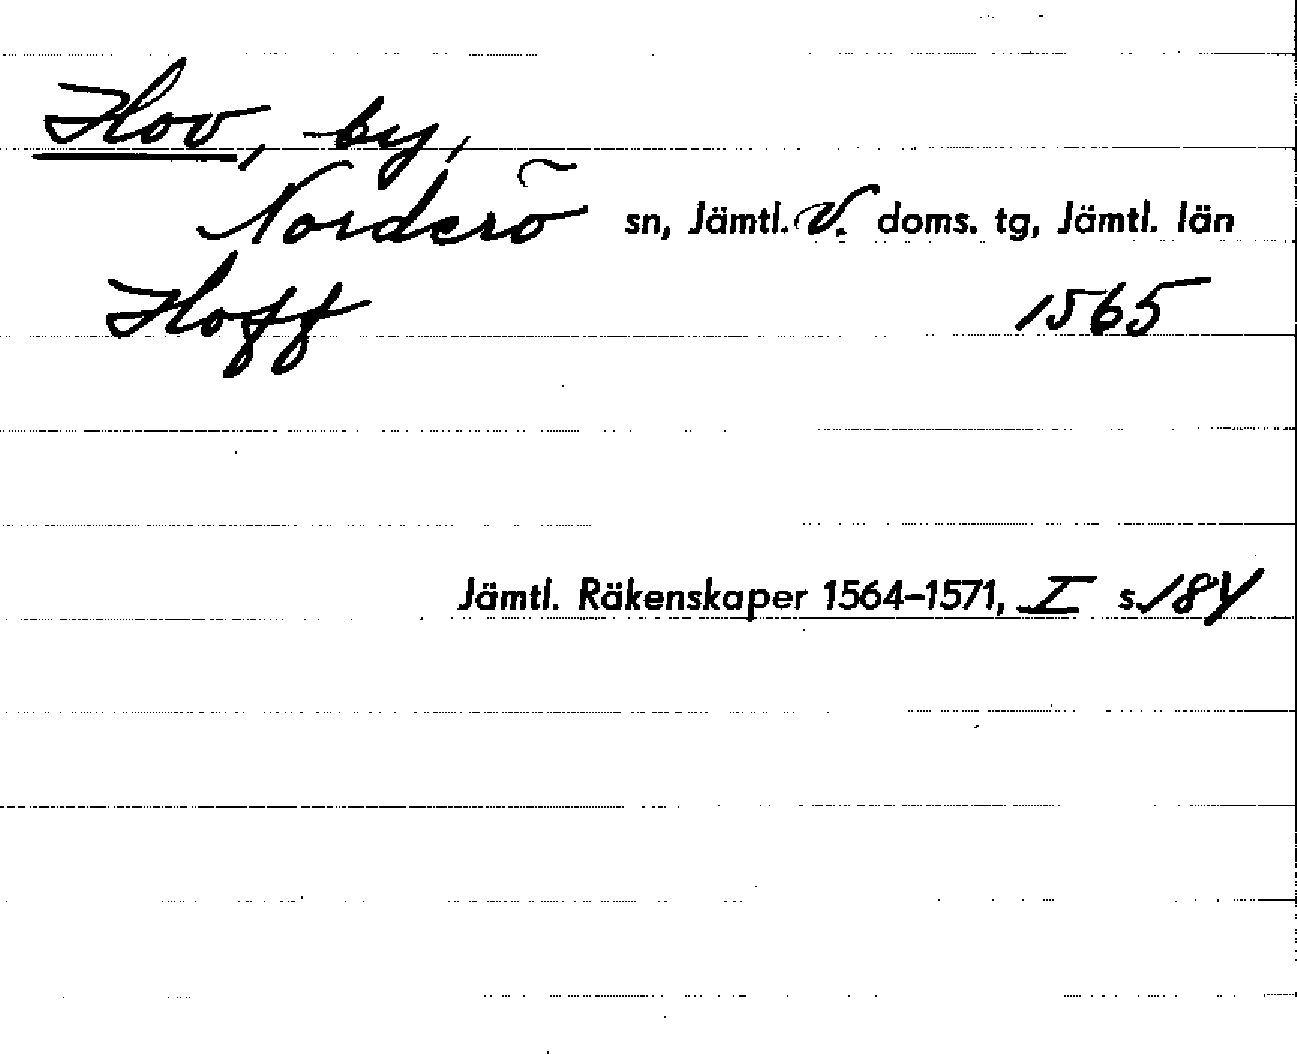 Hov, by,
Norderö sn, Jämtl. V. doms. tg, Jämtl. län
Hoff 1565
Jämtl. Räkenskaper 1564–1571, I s. 184